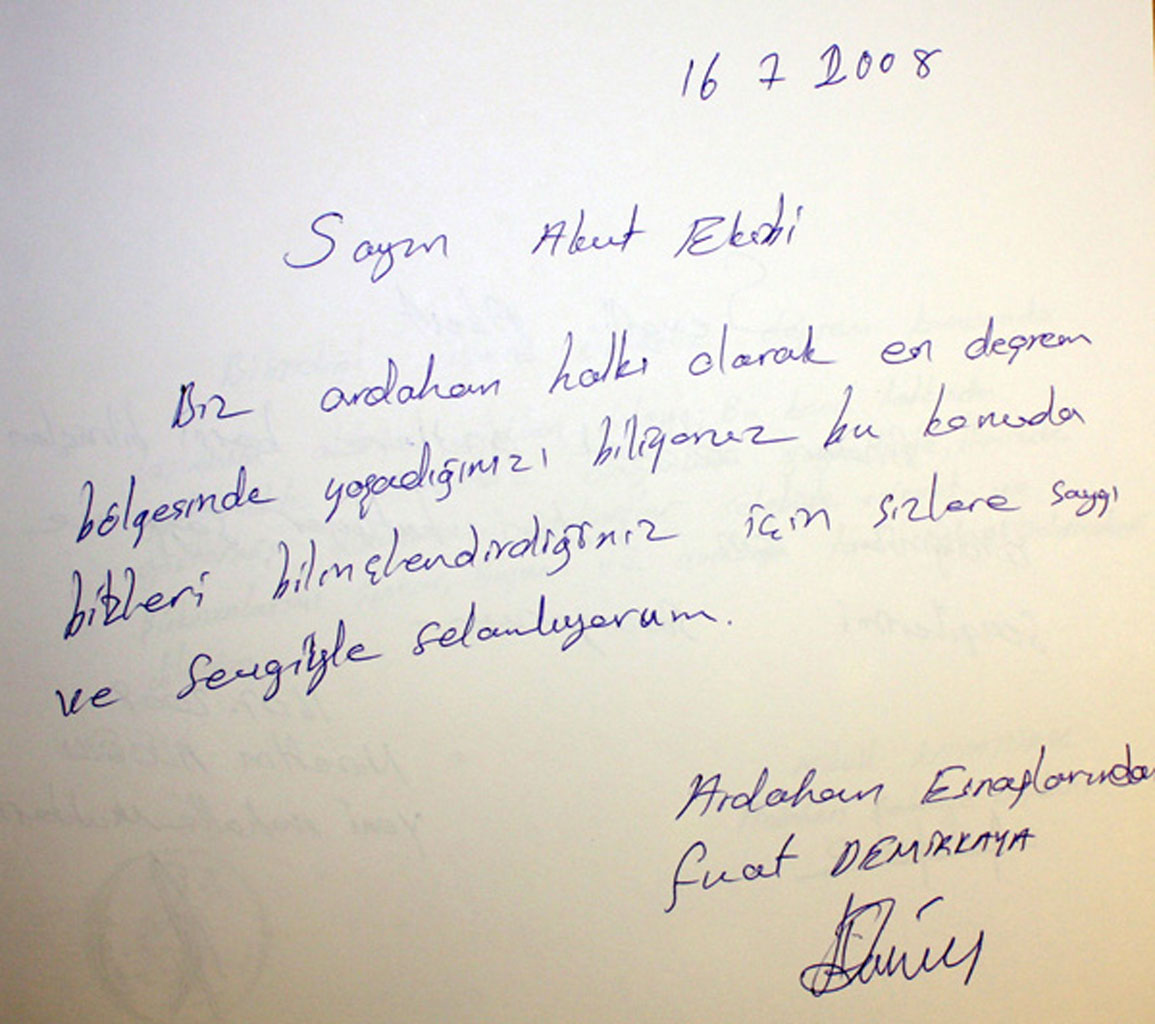 16 7 2008
Sayın Akut Ekibi
Biz ardahan halkı olarak en deprem
bölgesinde yaşadığımızı biliyoruz bu konuda
bizleri bilinçlendirdiğiniz için sizlere saygı
ve sevgiyle selamlıyorum.
Ardahan Esnaflarında
Fuat DEMİRKAYA